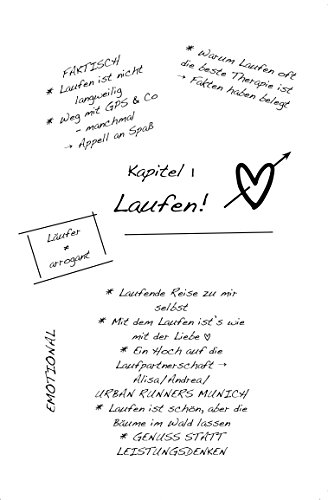 FAKTISCH
* Laufen ist nicht
langweilig
* Weg mit GPS & Co
- manchmal
→ Appell an Spaß
* Warum Laufen oft
die beste Therapie ist
→ Fakten haben belegt
Kapitel 1
Laufen!
Läufer
≠
arrogant
EMOTIONAL
* Laufende Reise zu mir
selbst
* Mit dem Laufen ist's wie
mit der Liebe ♡
* Ein Hoch auf die
Laufpartnerschaft →
Alisa/Andrea/
URBAN RUNNERS MUNICH
* Laufen ist schön, aber die
Bäume im Wald lassen
* GENUSS STATT
LEISTUNGSDENKEN